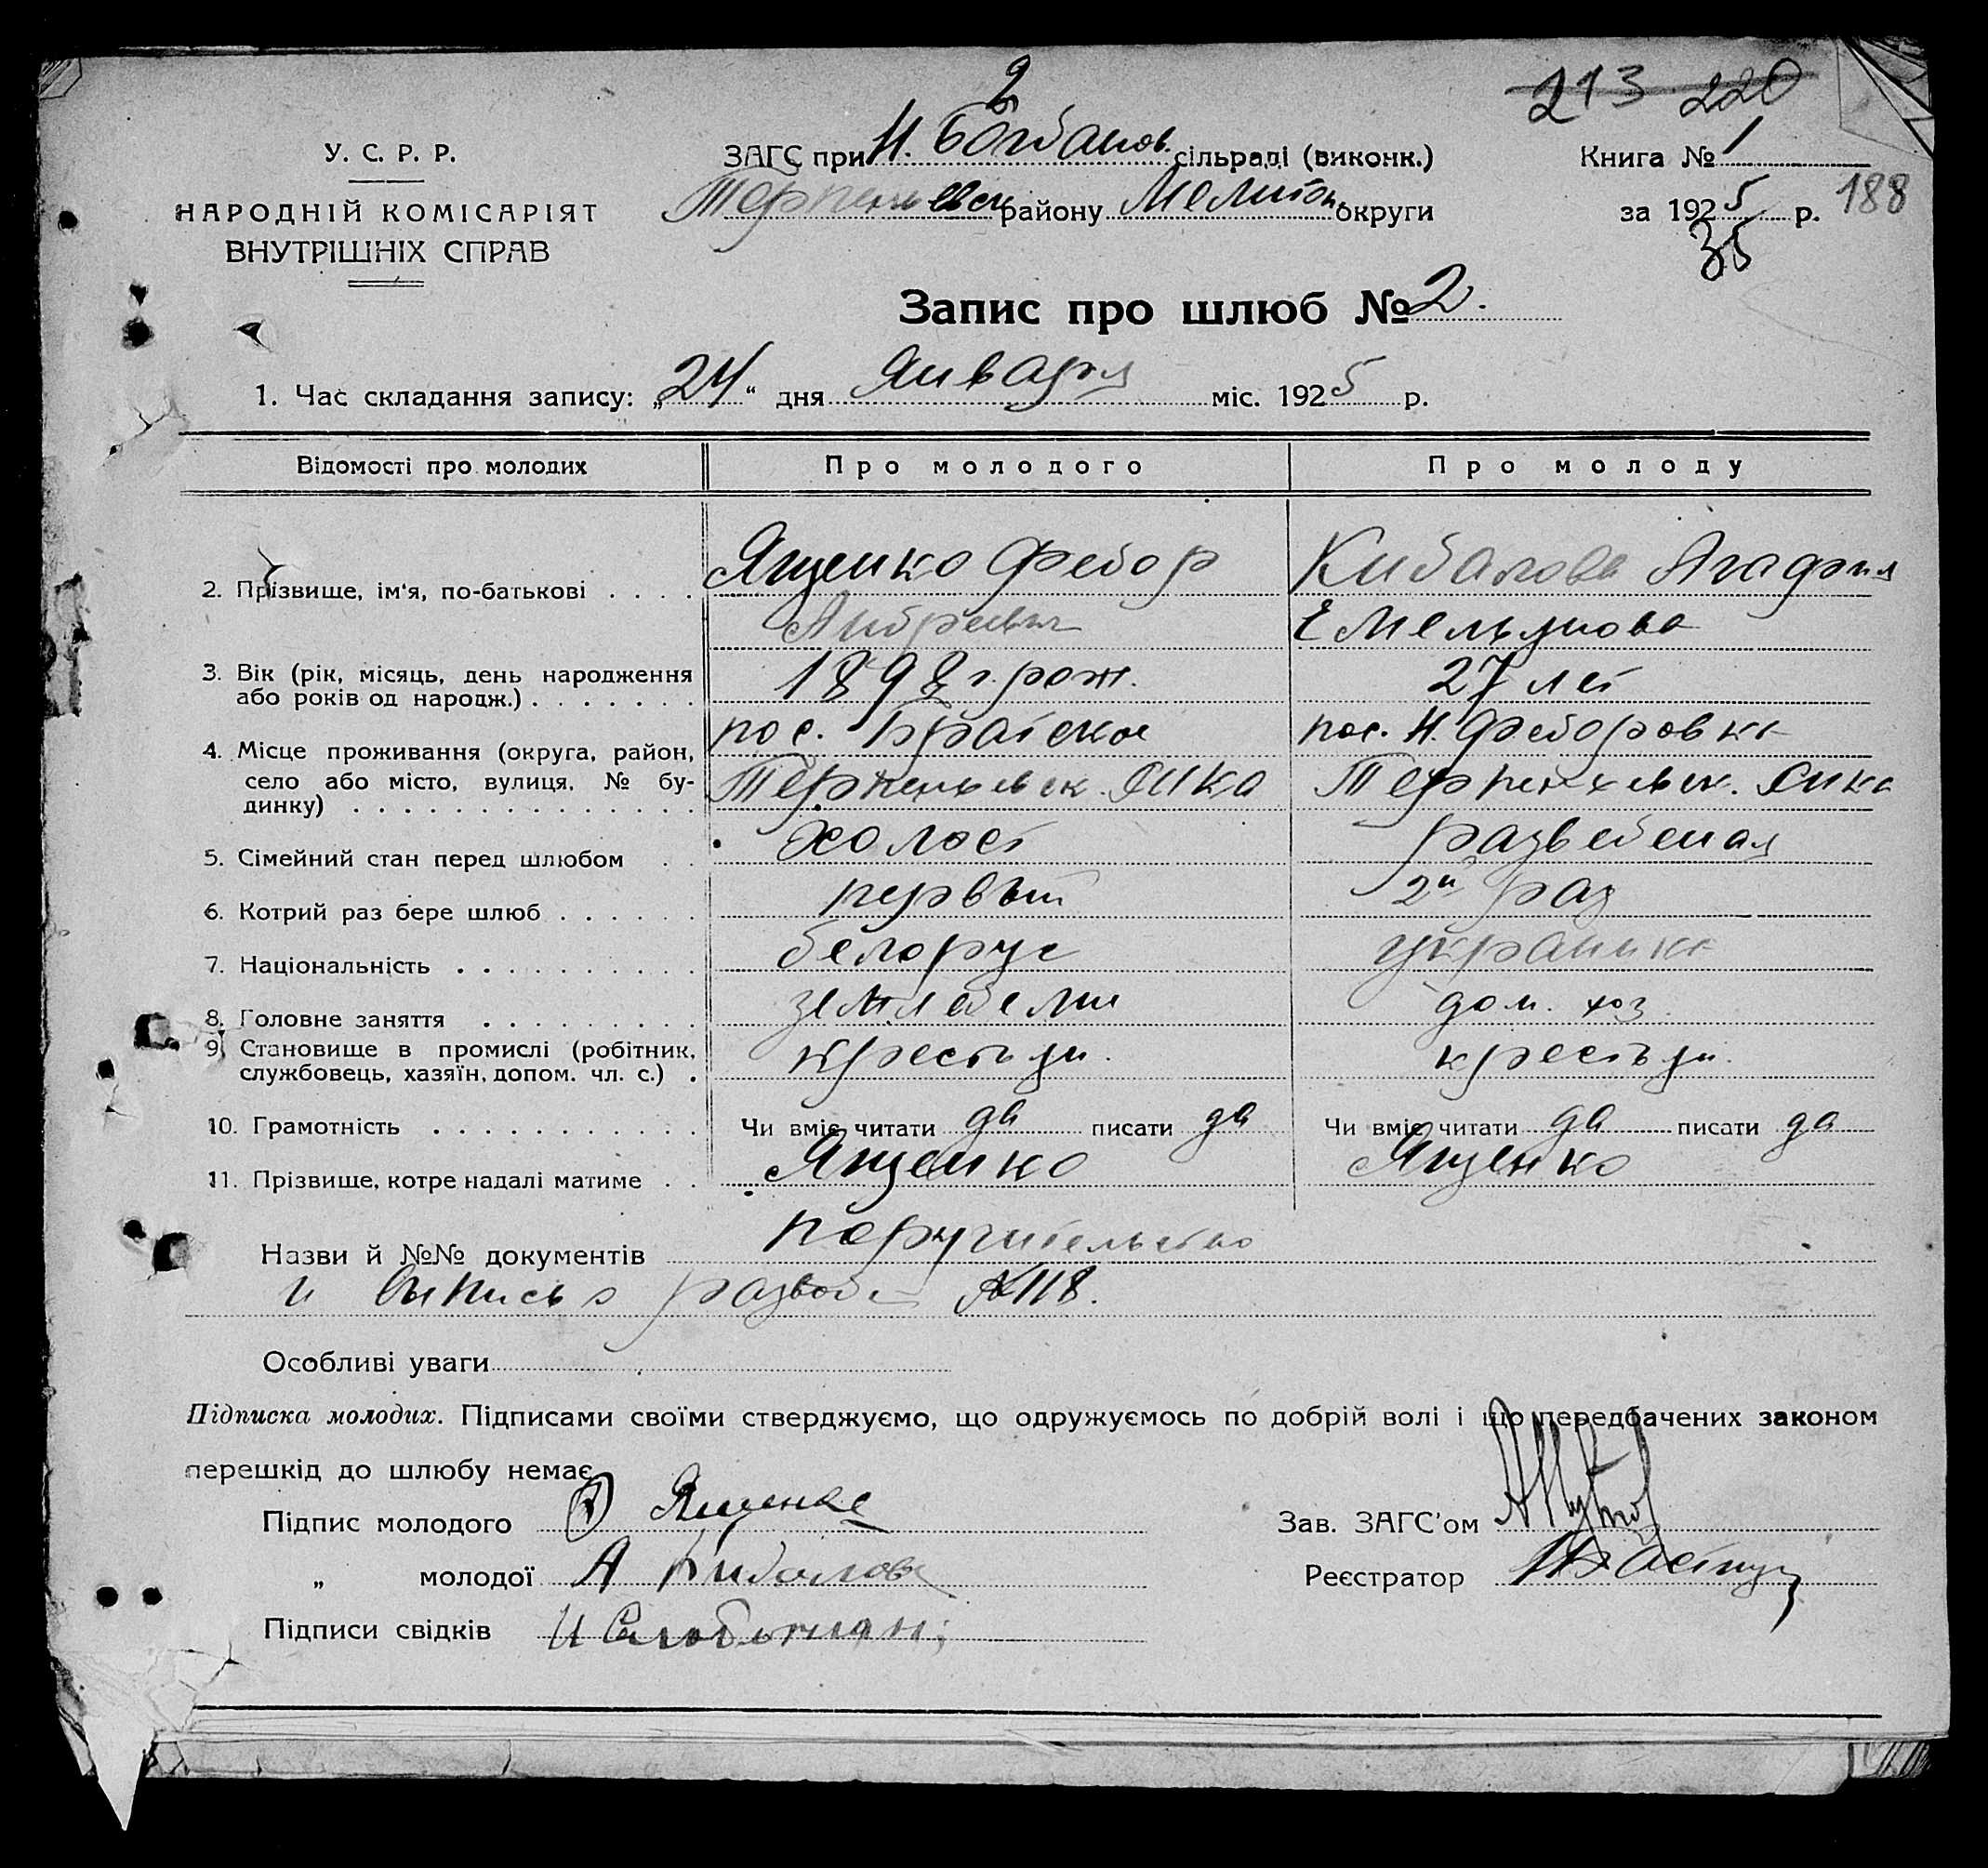 2
213 220
У. С. Р. Р.
НАРОДНІЙ КОМІСАРІЯТ
ВНУТРІШНІХ СПРАВ
ЗАГС при Н. Богданов. сільраді (виконк.)
Терпеньевск району Мелитоп. округи
Книга № 1
за 1925 р. 188
35
Запис про шлюб № 2.
1. Час складання запису: „24“ дня Января міс. 1925 р.
Відомості про молодих Про молодого Про молоду
2. Прізвище, ім'я, по-батькові . . . . Ященко Федор Кибалова Агафия
Андреевич Емельянова
3. Вік (рік, місяць, день народження 1898 г. рож. 27 лет
або років од народж.) . . . . . . .
4. Місце проживання (округа, район, пос. Братское пос. Н. Федоровка
село або місто, вулиця, № бу- Терпеньевск. Терпеньевск.
динку) . . . . . . . . . . . . . .
5. Сімейний стан перед шлюбом . . холост разведеная
6. Котрий раз бере шлюб . . . . . . первый 2й раз
7. Національність . . . . . . . . . . белорус украинка
8. Головне заняття . . . . . . . . . земледелие дом. хоз.
9. Становище в промислі (робітник, крестьян. крестьян.
службовець, хазяїн, допом. чл. с.) .
10. Грамотність . . . . . . . . . . . Чи вміє читати да писати да Чи вміє читати да писати да
11. Прізвище, котре надалі матиме . . Ященко Ященко
Назви й №№ документів поручительство
и выпись о разводе №118.
Особливі уваги
Підписка молодих. Підписами своїми стверджуємо, що одружуємось по добрій волі і що передбачених законом
перешкід до шлюбу немає.
Підпис молодого Ященко Зав. ЗАГС'ом
„ молодої А Кибалова Реєстратор
Підписи свідків И